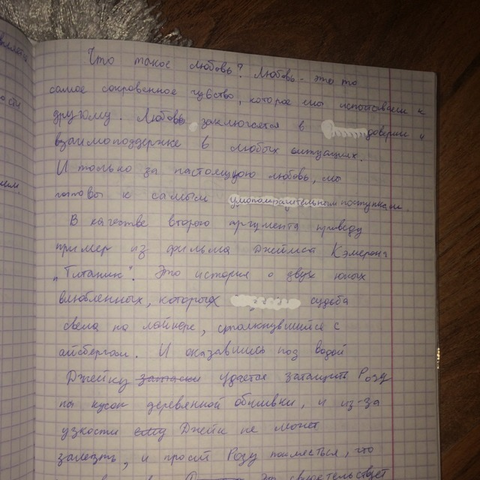 Что такое любовь? Любовь - это то
самое сокровенное чувство, которое мы испытываем к
другому. Любовь заключается в доверии и
взаимоподдержке в любых ситуациях.
И только за настоящую любовь, мы
готовы к самым умопомрачительным поступкам
В качестве второго аргумента приведу
пример из фильма Джеймса Кэмерона
„Титаник". Это история о двух юных
влюбленных, которых судьба
свела на лайнере, столкнувшимся с
айсбергом. И оказавшись под водой
Джейку удается затащить Розу
на кусок деревянной обшивки, и из-за
узкости Джейк не может
залезть, и просит Розу поклясться, что
Это свидетельствует